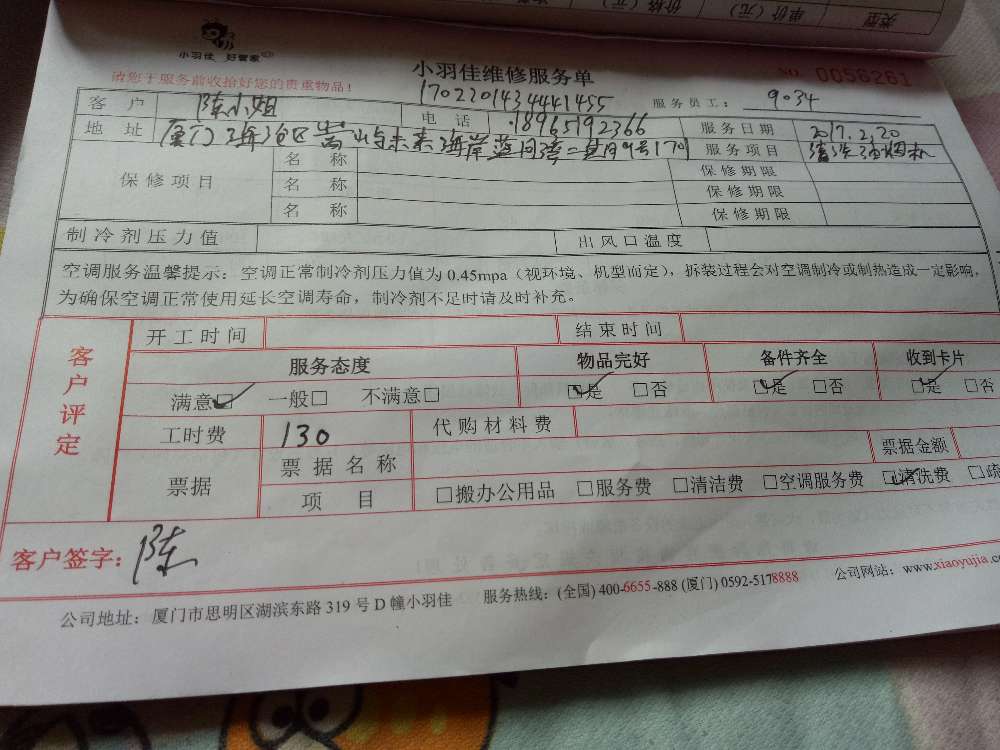 类型 单价(元) 价格(元)
小羽佳 好管家
请您于服务前收拾好您的贵重物品!
小羽佳维修服务单
NO 0056261
1702201434441455
服务员工: 9034
客户 陈小姐 电话 18965192366 服务日期 2017.2.20
地址 厦门海沧区嵩屿未来海岸蓝月湾二期9号1701 服务项目 清洗油烟机
保修项目 名称 保修期限
名称 保修期限
名称 保修期限
制冷剂压力值 出风口温度
空调服务温馨提示:空调正常制冷剂压力值为0.45mpa(视环境、机型而定),拆装过程会对空调制冷或制热造成一定影响,
为确保空调正常使用延长空调寿命,制冷剂不足时请及时补充。
客户评定
开工时间 结束时间
服务态度 物品完好 备件齐全 收到卡片
满意☑ 一般□ 不满意□ ☑是 □否 ☑是 □否 ☑是 □否
工时费 130 代购材料费
票据 票据名称 票据金额
项目 □搬办公用品 □服务费 □清洁费 □空调服务费 ☑清洗费 □疏
客户签字: 陈
公司地址:厦门市思明区湖滨东路319号D幢小羽佳 服务热线:(全国) 400-6655-888 (厦门) 0592-5178888 公司网站:www.xiaoyujia.c